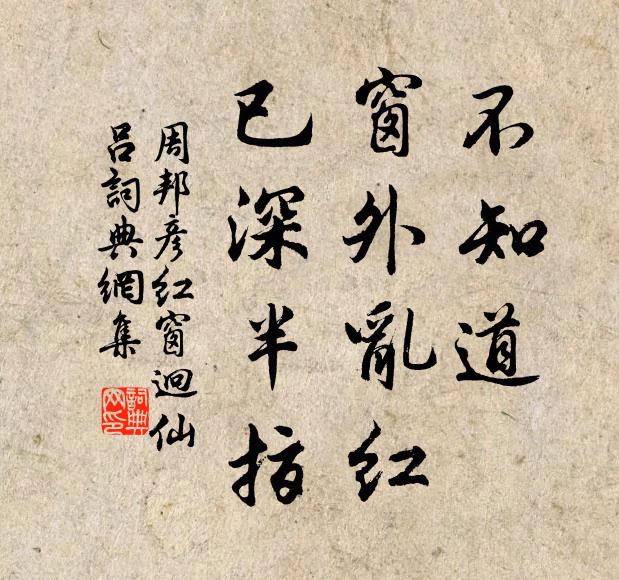 不知道
窗外亂紅
已深半指
周邦彥红窗迴仙
呂詞典網集
詞典
网印